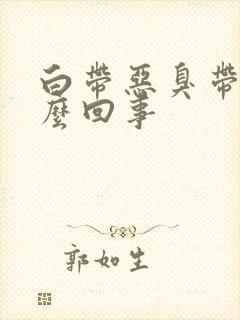 白帶惡臭帶
麼回事
郭如生